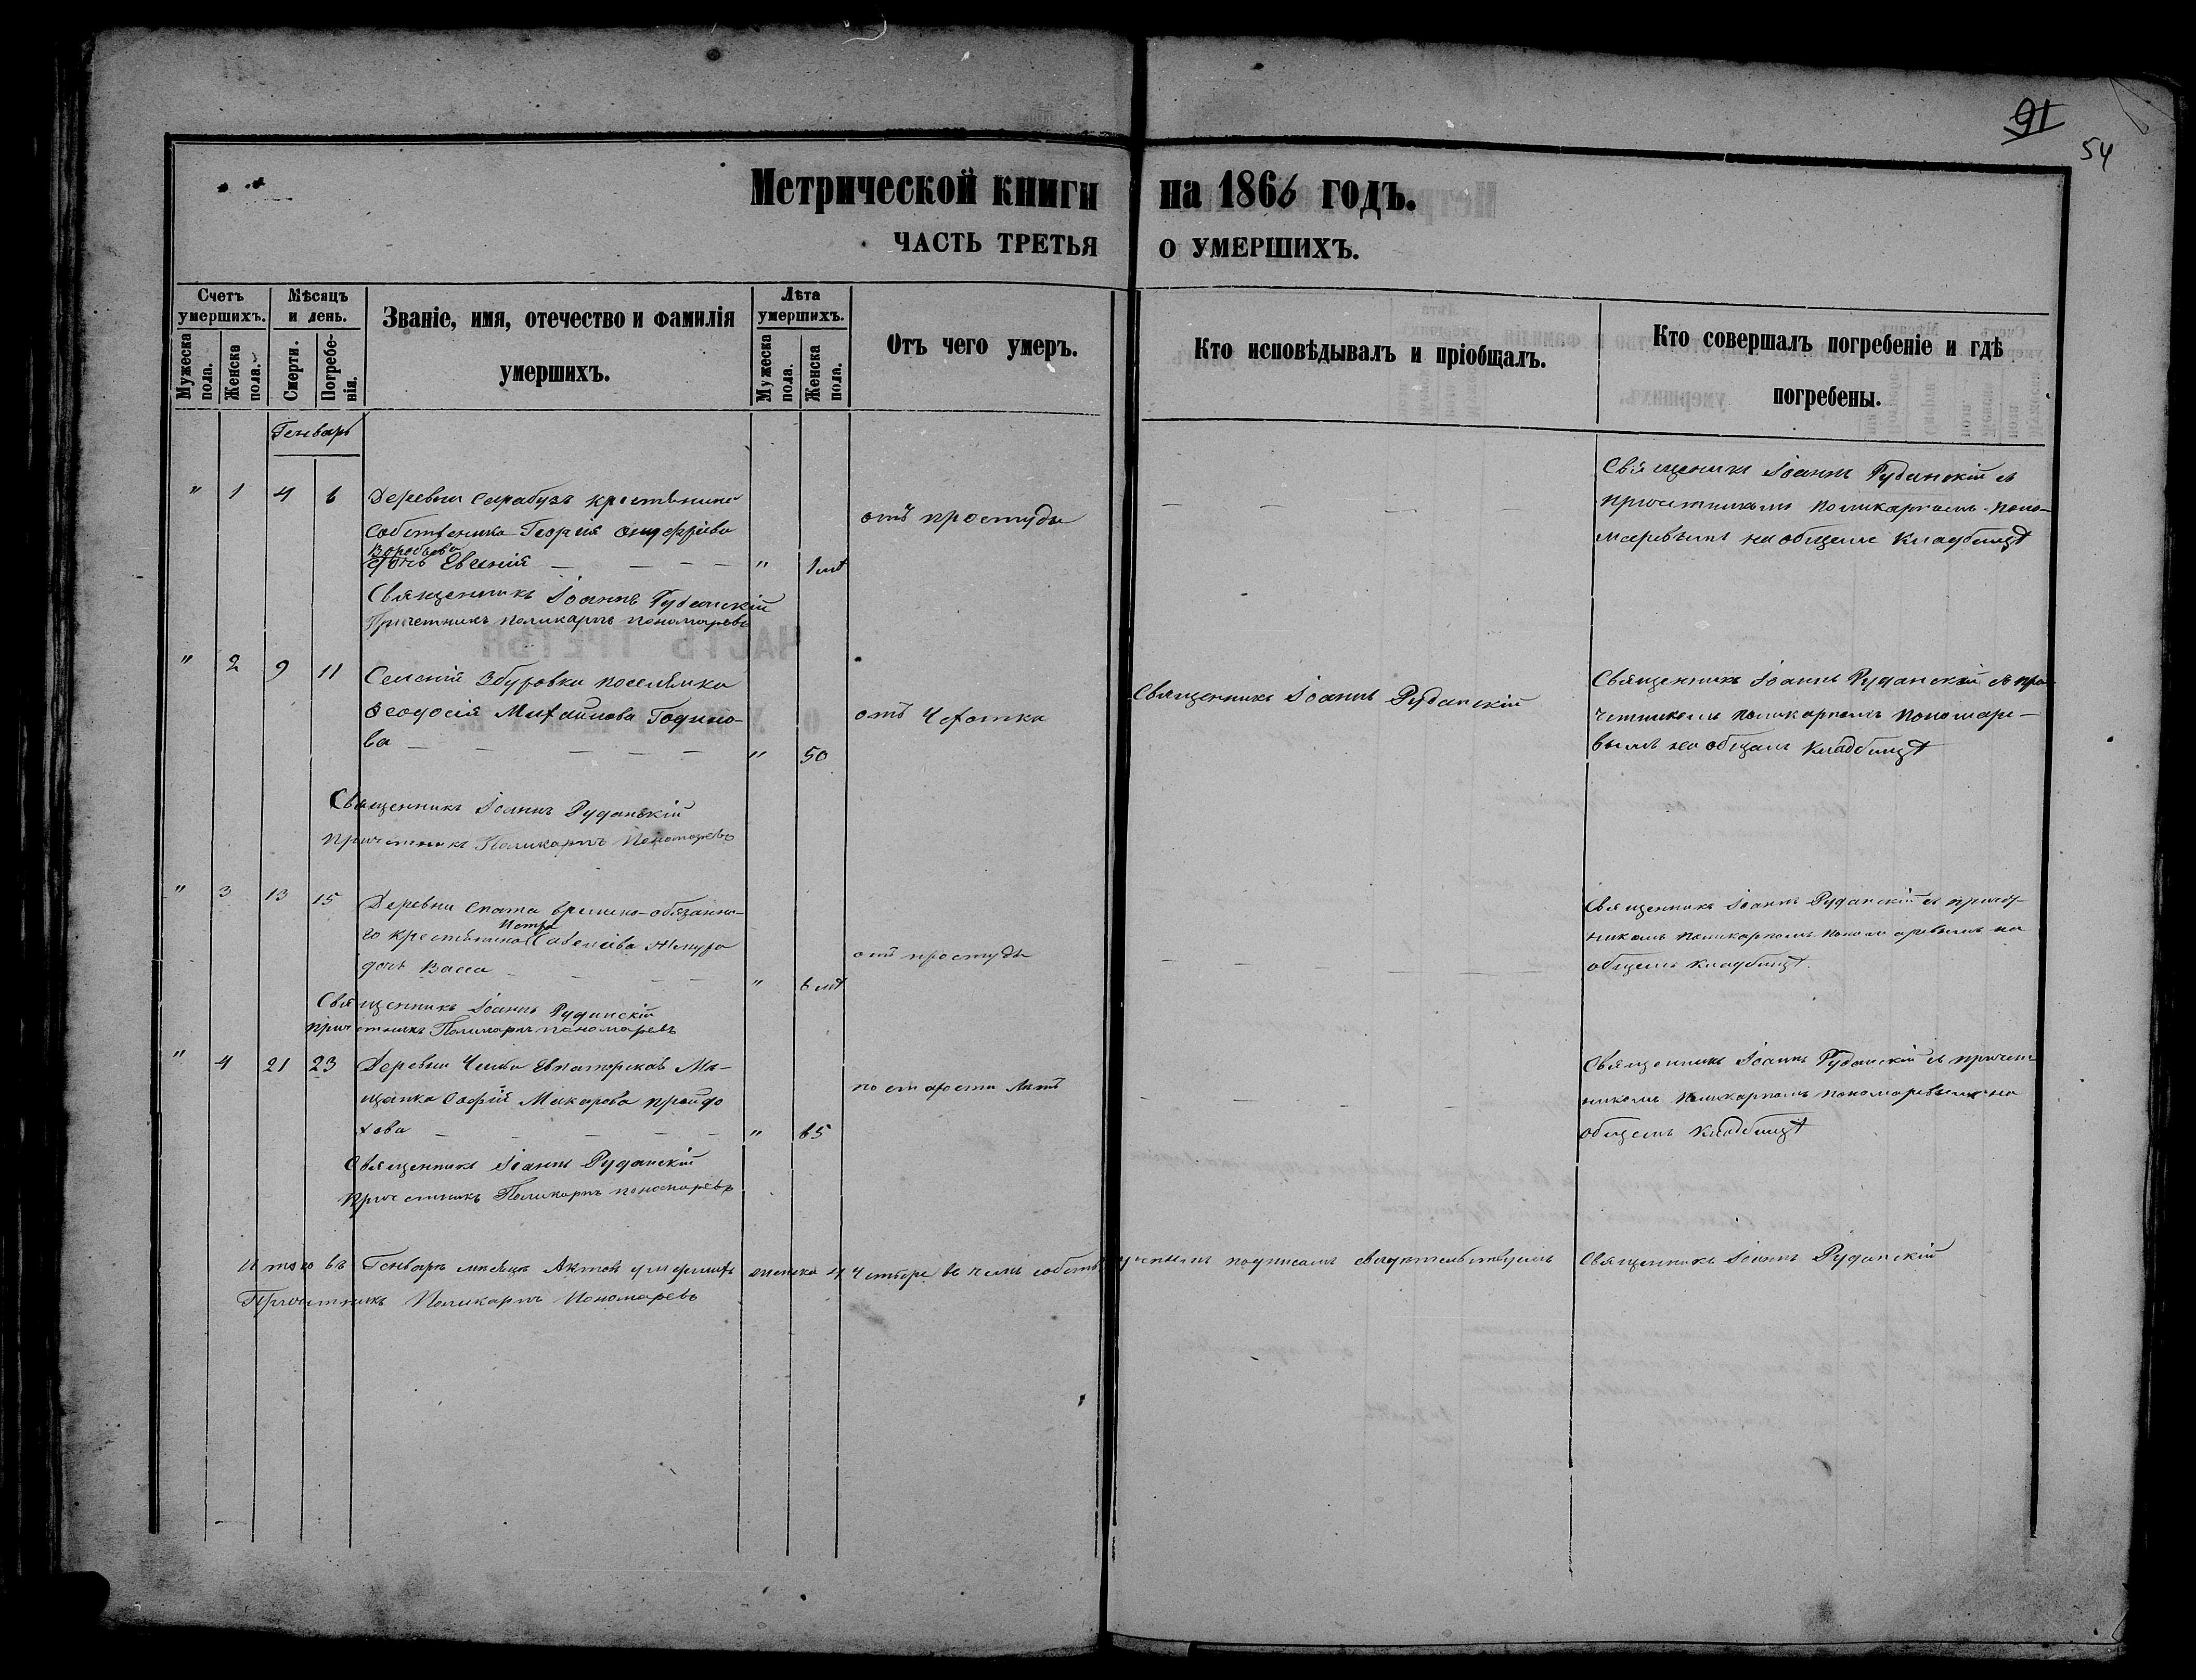 91
54
Метрической книги на 1866 годъ.
ЧАСТЬ ТРЕТЬЯ О УМЕРШИХЪ.
Счетъ умершихъ.
Мужеска пола.
Женска пола.
Мѣсяцъ и день.
Смерти.
Погребенія.
Званіе, имя, отечество и фамилія
умершихъ.
Лѣта умершихъ.
Мужеска пола.
Женска пола.
Отъ чего умеръ.
Кто исповѣдывалъ и пріобщалъ.
Кто совершалъ погребеніе и гдѣ
погребены.
Генварь
" 1 4 6
Деревни Сарабузъ крестьянина
Собственника Георгія Онуфріева
Воробьева
дочь Евгенія — — — — " 1
отъ простуды
— — — —
Священникъ Іоаннъ Руданскій съ
причетникомъ Поликарпомъ Поно-
маревымъ на общемъ кладбищѣ
Священникъ Іоаннъ Руданскій
Причетникъ Поликарпъ Пономаревъ
" 2 9 11
Селеній Збуровки поселянка
Ѳеодосія Михайлова
ва — — — — — " 50
отъ Чахотки
Священникъ Іоаннъ Руданскій
Священникъ Іоаннъ Руданскій съ при-
четникомъ Поликарпомъ Пономаре-
вымъ на общемъ кладбищѣ
Священникъ Іоаннъ Руданскій
Причетникъ Поликарпъ Пономаревъ
" 3 13 15
Деревни Спата временно-обязанна-
го крестьянина Петра Савельева
дочь Васса — — — " 6
отъ простуды
— — — — —
Священникъ Іоаннъ Руданскій съ причет-
никомъ Поликарпомъ Пономаревымъ на
общемъ кладбищѣ.
Священникъ Іоаннъ Руданскій
Причетникъ Поликарпъ Пономаревъ
" 4 21 23
Деревни Евпаторская Мѣ-
щанка Софія Макарова
хова — — — — — " 65
по старости лѣтъ
— — — —
Священникъ Іоаннъ Руданскій съ причет
никомъ Поликарпомъ Пономаревымъ на
общемъ кладбищѣ
Священникъ Іоаннъ Руданскій
Причетникъ Поликарпъ Пономаревъ
Итого въ Генварѣ мѣсяцѣ Актовъ умершихъ женска 4 четыре въ чемъ собственноручнымъ подписомъ свидѣтельствуемъ Священникъ Іоаннъ Руданскій
Причетникъ Поликарпъ Пономаревъ